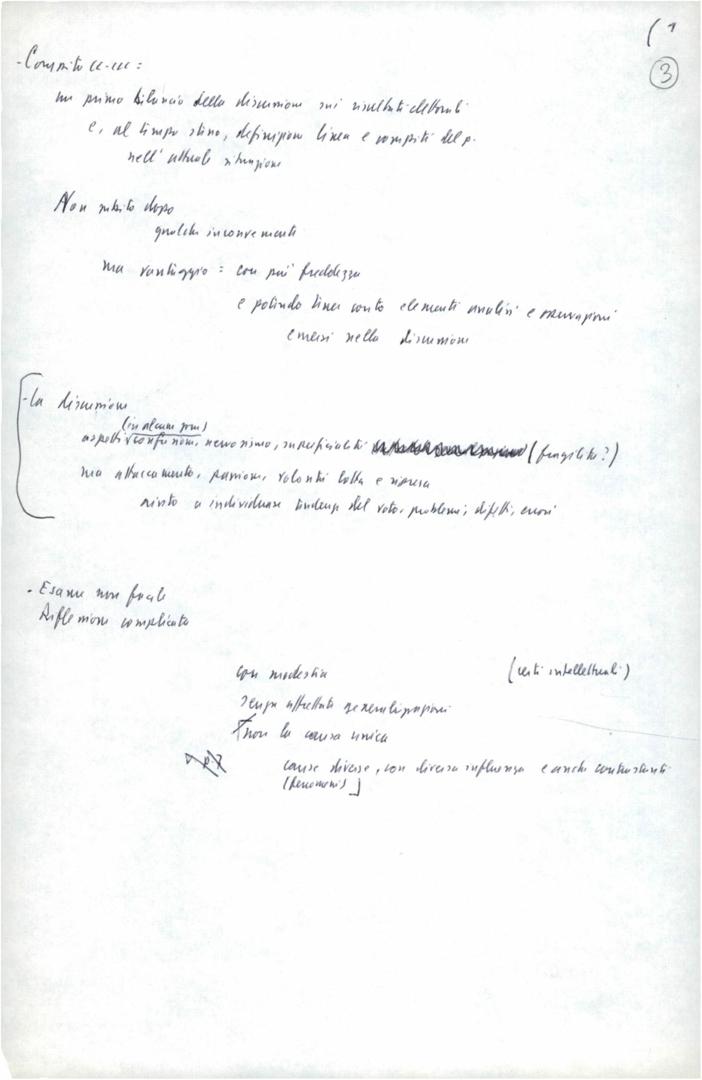 ( 1
3
- Compito CC-CCC :
un primo bilancio della discussione sui risultati elettorali
e, al tempo stesso, definizione linea e compiti del p.
nell'attuale situazione
Non subito dopo
qualche inconveniente
ma vantaggio : con più freddezza
e potendo tener conto elementi analisi e osservazioni
emersi nella discussione
- La discussione
(in alcuni casi)
aspetti confusione, nervosismo, superficialità (fragilità?)
ma attaccamento, passione, volontà lotta e ripresa
aiuto a individuare tendenze del voto, problemi, difetti, errori
- Esame non facile
Riflessione complicata
con modestia (certi intellettuali)
senza affrettate generalizzazioni
[non la causa unica
cause diverse, con diversa influenza e anche contrastanti
(fenomeni)]